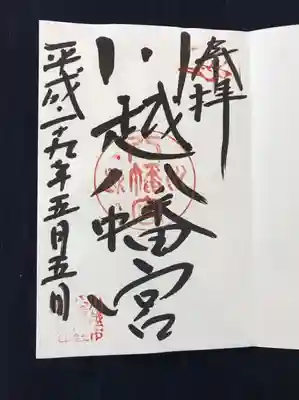 奉拝
川越八幡宮
平成二十九年五月五日